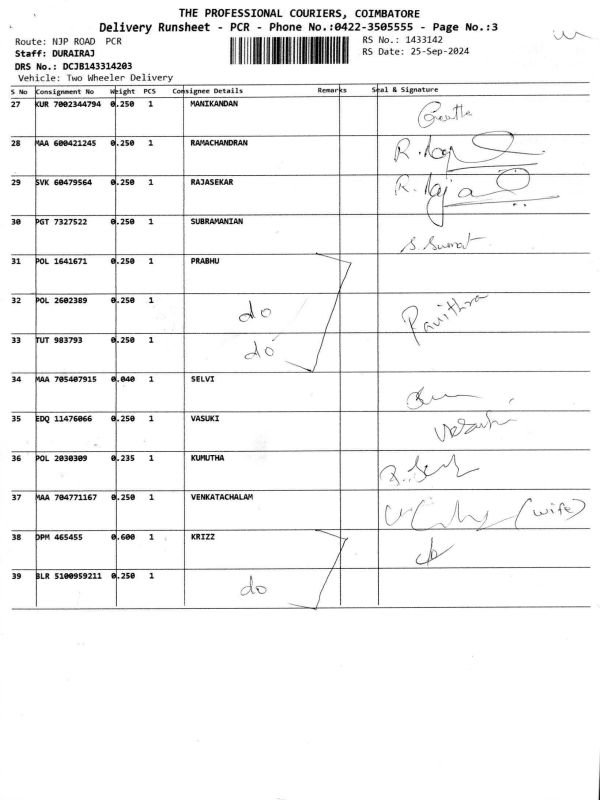 THE PROFESSIONAL COURIERS, COIMBATORE
Delivery Runsheet - PCR - Phone No.:0422-3505555 - Page No.:3
Route: NJP ROAD PCR RS No.: 1433142
Staff: DURAIRAJ RS Date: 25-Sep-2024
DRS No.: DCJB143314203
Vehicle: Two Wheeler Delivery
S No Consignment No Weight PCS Consignee Details Remarks Seal & Signature
27 KUR 7002344794 0.250 1 MANIKANDAN
28 MAA 600421245 0.250 1 RAMACHANDRAN
29 SVK 60479564 0.250 1 RAJASEKAR
30 PGT 7327522 0.250 1 SUBRAMANIAN
31 POL 1641671 0.250 1 PRABHU
32 POL 2602389 0.250 1 do Pavithra
33 TUT 983793 0.250 1 do
34 MAA 705407915 0.040 1 SELVI
35 EDQ 11476066 0.250 1 VASUKI
36 POL 2030309 0.235 1 KUMUTHA
37 MAA 704771167 0.250 1 VENKATACHALAM (wife)
38 DPM 465455 0.600 1 KRIZZ
39 BLR 5100959211 0.250 1 do